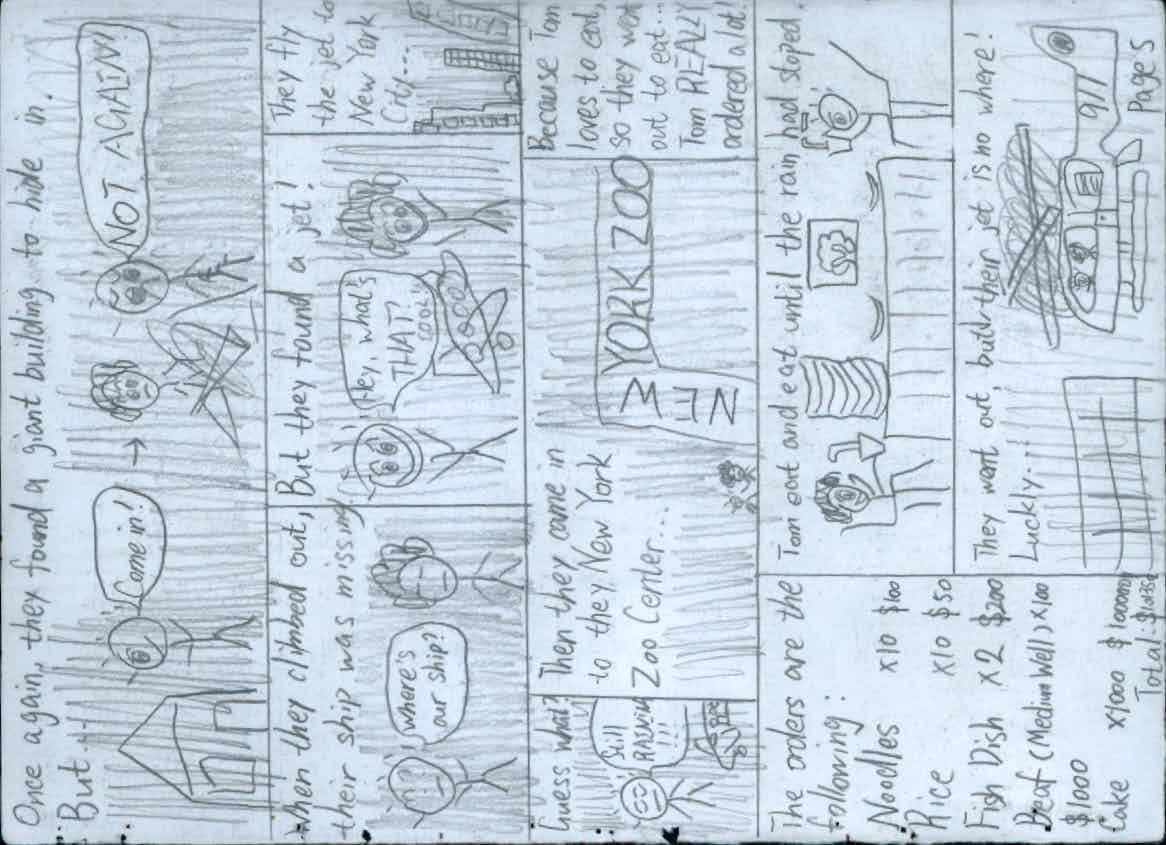 Once again, they found a giant building to hide in.
But...
Come in!
NOT AGAIN!
When they climbed out,
their ship was missing
where's
our ship?
But they found a jet!
Hey, what's
THAT?
COOL!
They fly
the jet to
New York
City...
Guess what?
Still
RAINING
!!!
Then they came in
to they New York
Zoo Center...
NEW YORK ZOO
Because Tom
loves to eat,
so they went
out to eat...
Tom REALLY
ordered a lot!
The orders are the
following:
Noodles x10 $100
Rice x10 $50
Fish Dish x2 $200
Beaf (Medium Well) x100
$1000
Cake x1000 $100000
Total: $101350
Tom eat and eat until the rain had stoped.
They went out, but their jet is no where!
Luckly...!
911
Page 5